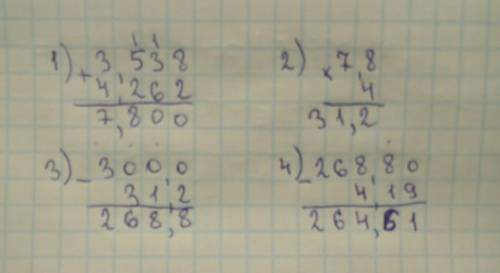 1) 3,538
+ 4,262
7,800
2) 7,8
× 4
31,2
3) - 300,0
31,2
268,8
4) - 268,80
4,19
264,61